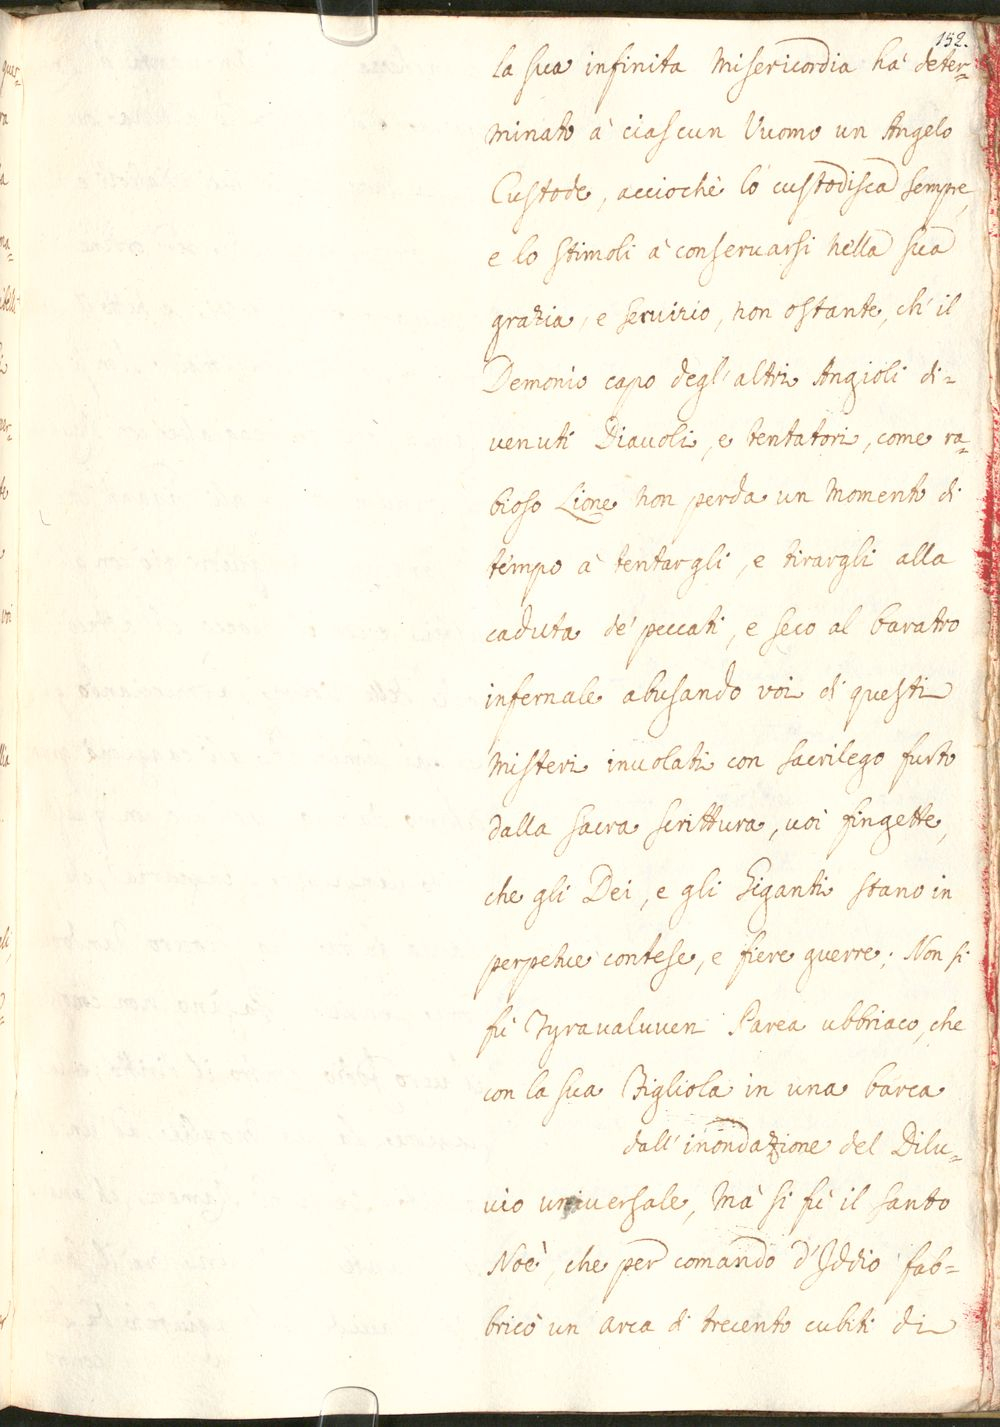 152.
la sua infinita Misericordia hà deter-
minato à ciascun Vuomo un Angelo
Custode, acciochè lo custodisca sempre,
e lo stimoli à conseruarsi nella sua
grazia, e seruizio, non ostante, ch' il
Demonio capo degl' altri Angioli di-
uenuti Diauoli, e tentatori, come ra-
bioso Lione non perda un momento di
tempo à tentargli, e tirargli alla
caduta de' peccati, e seco al baratro
infernale abusando voi di questi
Misteri inuolati con sacrilego furto
dalla sacra scrittura, uoi fingette,
che gli Dei, e gli Giganti stano in
perpetue contese, e fiere guerre; Non si
fù Tyraualuuen Parea ubbriaco, che
con la sua Figliola in una barca
dall' inondazione del Dilu-
uio uniuersale, Mà si fù il santo
Noè, che per comando d' Iddio fab-
bricò un arca di trecento cubiti di